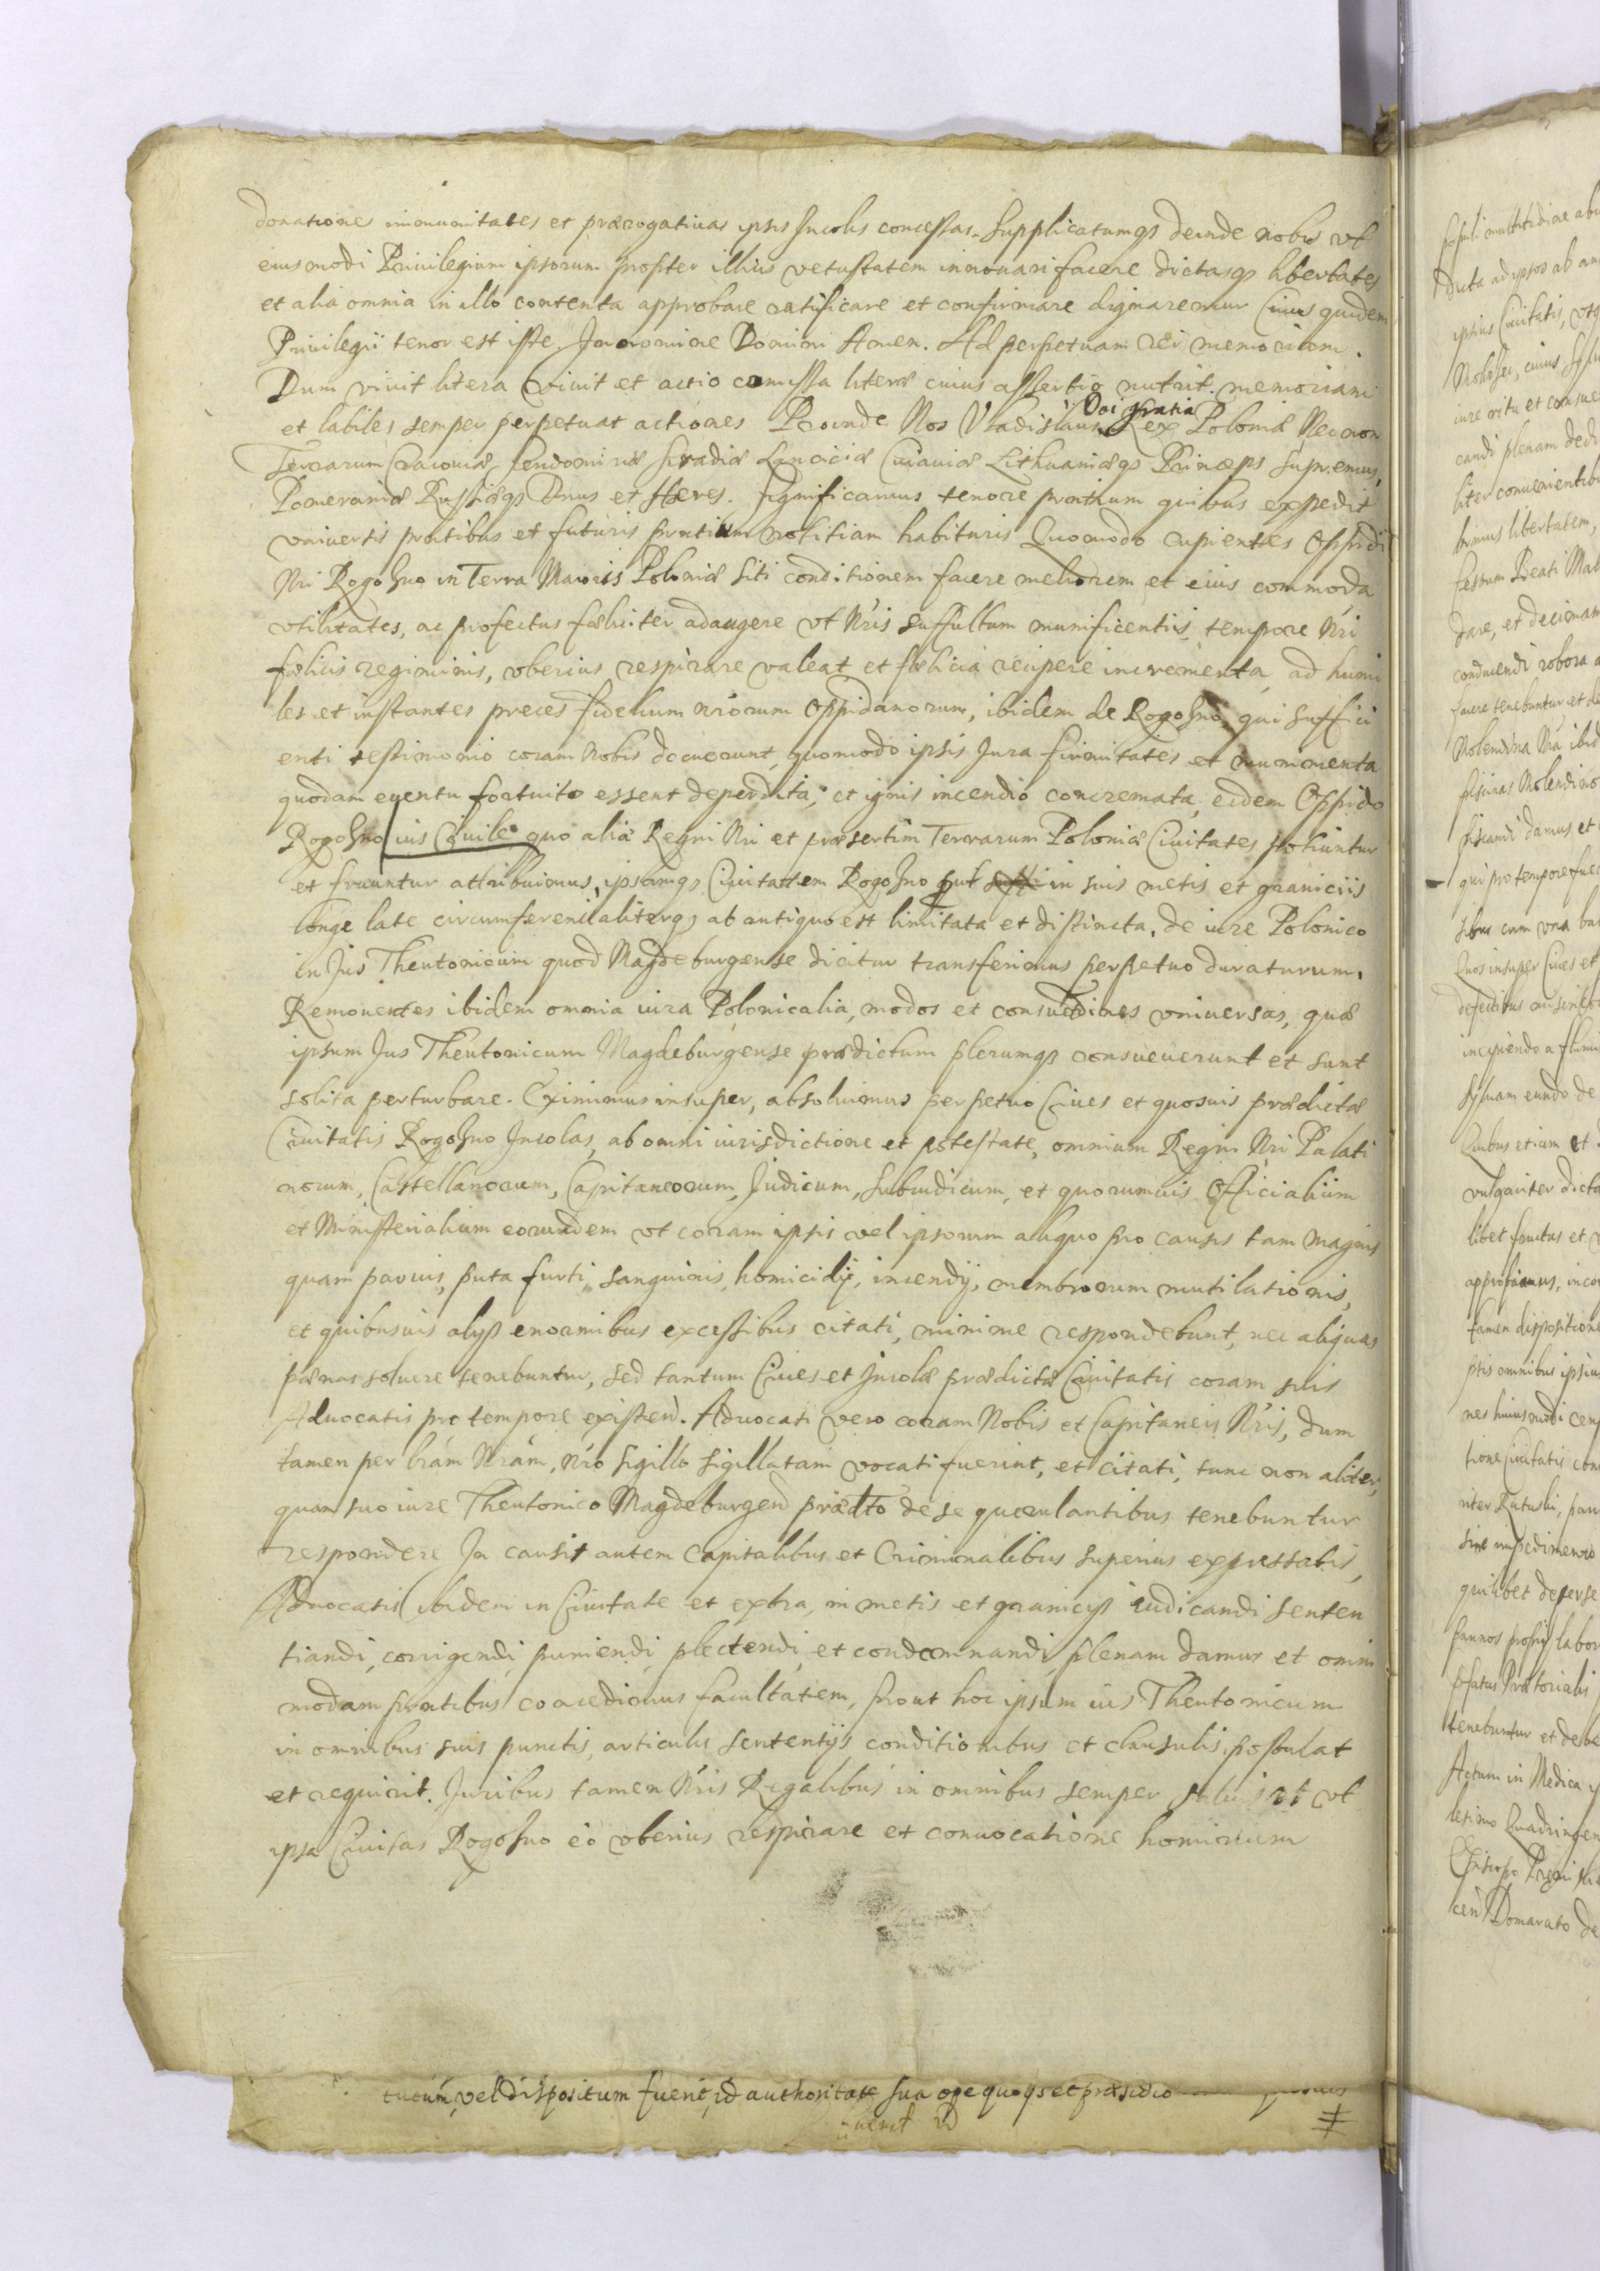 donationes immunitates et prærogatiuas ipsis Incolis concessas. Supplicatumqȝ deinde nobis vt
eiusmodi Priuilegium ipsorum propter illius vetustatem innouari facere dictasqȝ libertates
et alia omnia in illo contenta approbare ratificare et confirmare dignaremur Cuius quidem
Priuilegii tenor est iste. In nomine Domini Amen. Ad perpetuam rei memoriam.
Dum viuit litera viuit et actio comissa literæ cuius assertio nutrit memoriam
et labiles semper perpetuat actiones Proinde Nos Vladislaus Dei gratia Rex Poloniæ Nec non
Terrarum Cracouiæ, Sendomiriæ Siradiæ Lanciciæ Cuiauiæ Lithuaniæqȝ Princeps Supremus,
Pomeraniæ Russiæqȝ Dnus et Hæres. Significamus tenore prntium quibus expedit
vniuersis prntibus et futuris prntium notitiam habituris Quomodo cupientes Oppidi
Nri Rogoźno in Terra Maioris Poloniæ siti conditionem facere meliorem et eius commoda
vtilitates, ac profectus fœliciter adaugere vt Nris suffultum munificentiis, tempore Nri
fœlicis regiminis, vberius respirare valeat et fœlicia recipere incrementa, ad humi
les et instantes preces fidelium nrorum Oppidanorum, ibidem de Rogoźno, qui suffici
enti testimonio coram nobis docuerunt, quomodo ipsis Jura firmitates et munimenta
quodam euentu fortuito essent deperdita, et ignis incendio concremata, eidem Oppido
Rogoźno ius Ciuile quo alia Regni Nri et præsertim Terrarum Poloniæ Ciuitates potiuntur
et fruuntur attribuimus, ipsamqȝ Ciuitatem Rogoźno put in suis metis et graniciis
longe late circumferentialiterqȝ ab antiquo est limitata et distincta, de iure Polonico
in Jus Theutonicum quod Magdeburgense dicitur transferimus perpetuo duraturum.
Remouentes ibidem omnia iura Polonicalia, modos et consuetudines vniuersas, quæ
ipsum Jus Theutonicum Magdeburgense prædictum plerumqȝ consueuerunt et sunt
solita perturbare. Eximimus insuper, absoluimus perpetuo Ciues et quosuis prædictæ
Ciuitatis Rogoźno Incolas, ab omni iurisdictione et potestate, omnium Regni Nri Palati
norum, Castellanorum, Capitaneorum, Judicum, Subiudicum, et quorumuis Officialium
et Ministerialium eorundem vt coram ipsis vel ipsorum aliquo pro causis tam magnis
quam paruis, puta furti, sanguinis, homicidij, incendij, membrorum mutilationis,
et quibusuis alijs enormibus excessibus citati, minime respondebunt, nec aliquas
pænas soluere tenebuntur, sed tantum Ciues et Incolæ prædictæ Ciuitatis coram suis
Aduocatis pro tempore existen. Aduocati vero coram Nobis et Capitaneis Nris, dum
tamen per lrám Nrám, nro sigillo sigillatam vocati fuerint, et citati, tunc non aliter,
quam suo iure Theutonico Magdeburgen prædto de se querulantibus tenebuntur
respondere In causis autem Capitalibus et Criminalibus superius expressatis,
Aduocatis ibidem in Ciuitate et extra, in metis et granicijs iudicandi senten
tiandi, corrigendi, puniendi, plectendi, et condemnandi, plenam damus et omni
modam prntibus concedimus facultatem, prout hoc ipsum ius Theutonicum
in omnibus suis punctis, articulis sententijs, conditionibus et clausulis, postulat
et requirit. Juribus tamen Nris Regalibus in omnibus semper saluis et vt
ipsa Ciuitas Rogoźno eo vberius respirare et conuocatione hominum
tutum, vel dispositum fuerit, id authoritate sua ope quoqȝ et præsidio